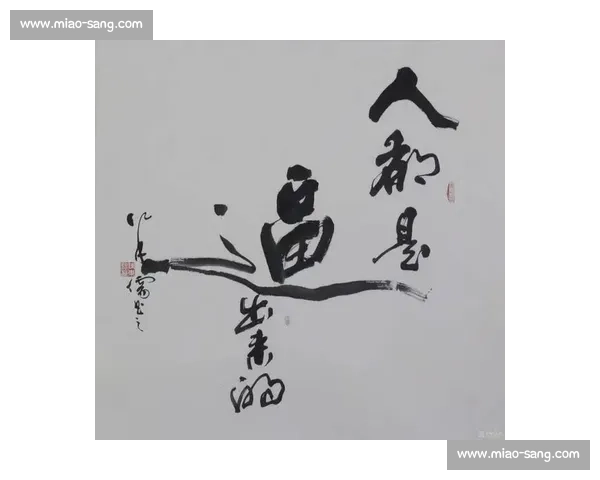 www.miao-sang.com
人都是
逼
出来的
www.miao-sang.com